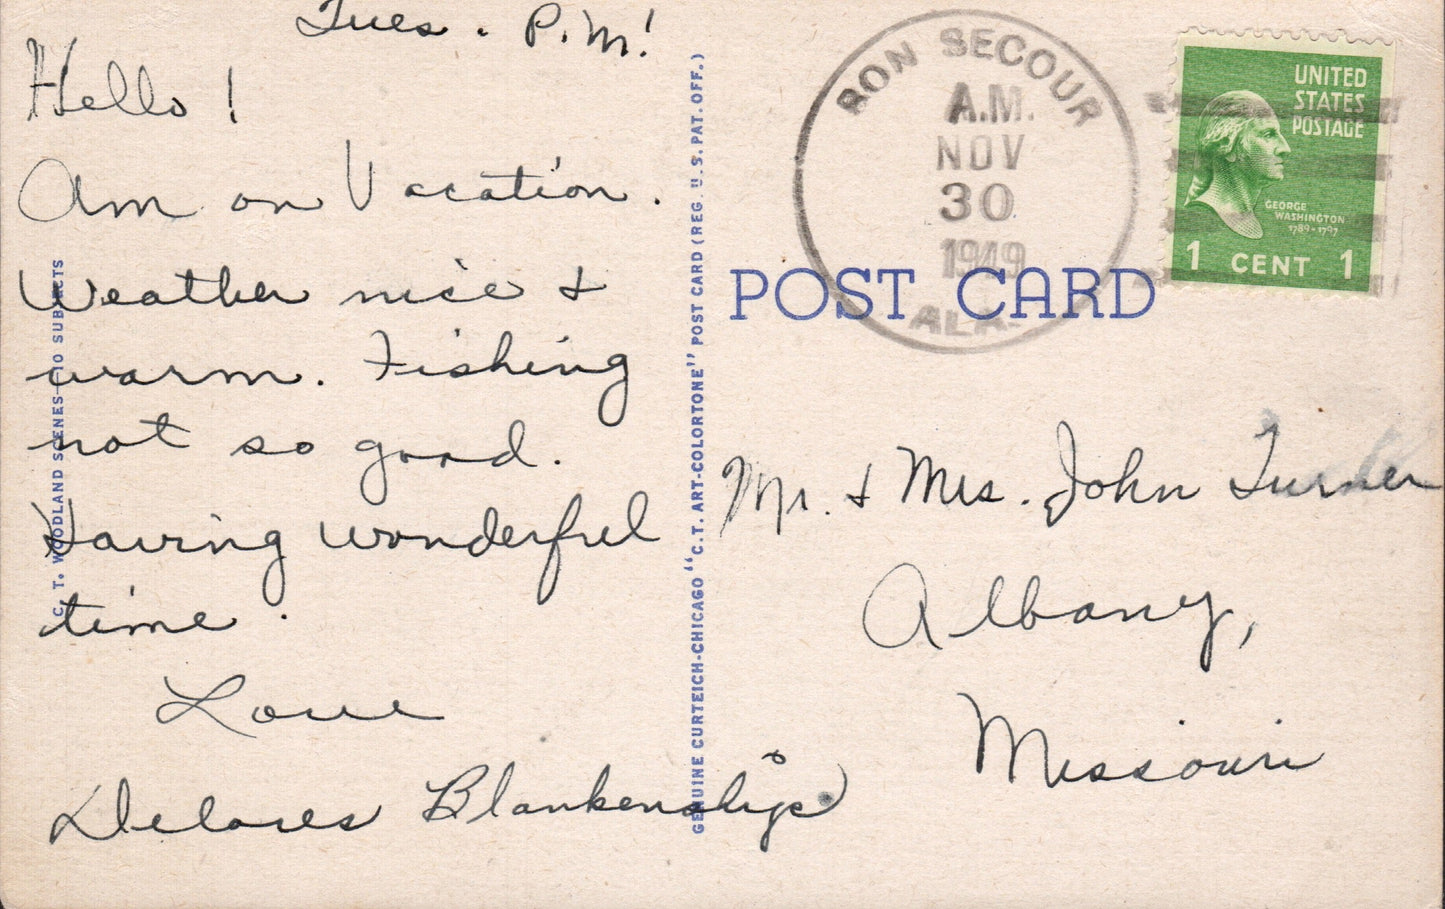 Tues. P.M!
Hello!
Am on Vacation.
Weather nice &
warm. Fishing
not so good.
Having wonderful
time.
Love
Delores Blankenship
C. T. WOODLAND SCENES—10 SUBJECTS
GENUINE CURTEICH-CHICAGO "C. T. ART-COLORTONE" POST CARD (REG. U. S. PAT. OFF.)
BON SECOUR
A.M.
NOV
30
1949
ALA.
UNITED
STATES
POSTAGE
GEORGE
WASHINGTON
1789-1797
1 CENT 1
POST CARD
Mr. & Mrs. John Turner
Albany,
Missouri